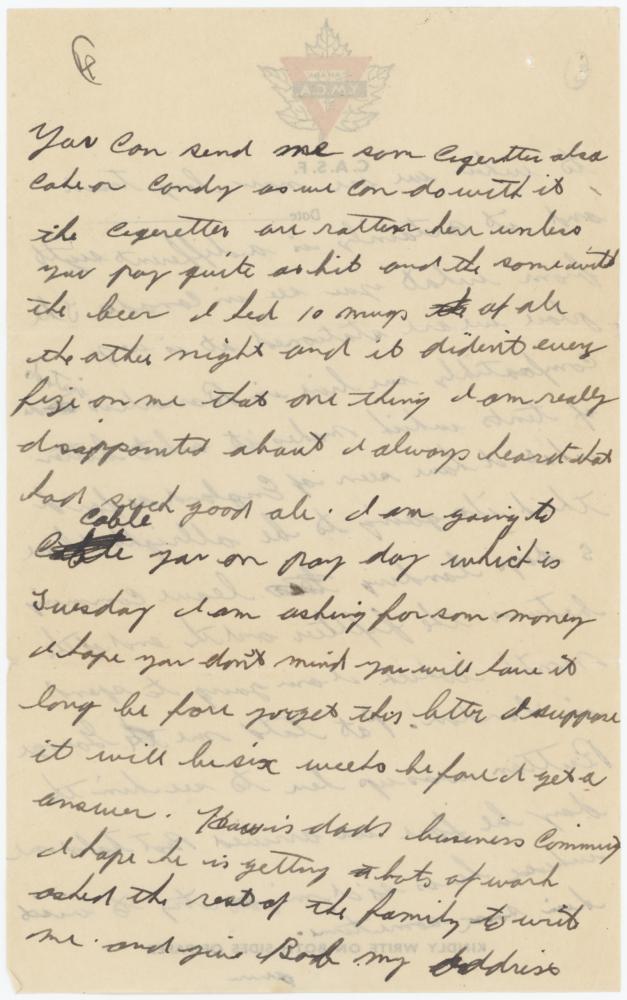 4
You can send me som cigerettes also
cake or candy as we can do with it
the cigerettes are rotten here unless
you pay quite a bit and the same with
the beer I hed 10 mugs of ale
the other night and it diden't every
fize on me that one thing I am really
disappointed about I always heard that
had such good ale. I am going to
cable
you on pay day which is
Tuesday I am asking for som money
I hope you don't mind you will have it
long be fore you get this letter I suppose
it will be six weeks before I get a
answer. How is dads business Comming
I hope he is getting lots of work
asked the rest of the family to writ
me. and give Bob my address